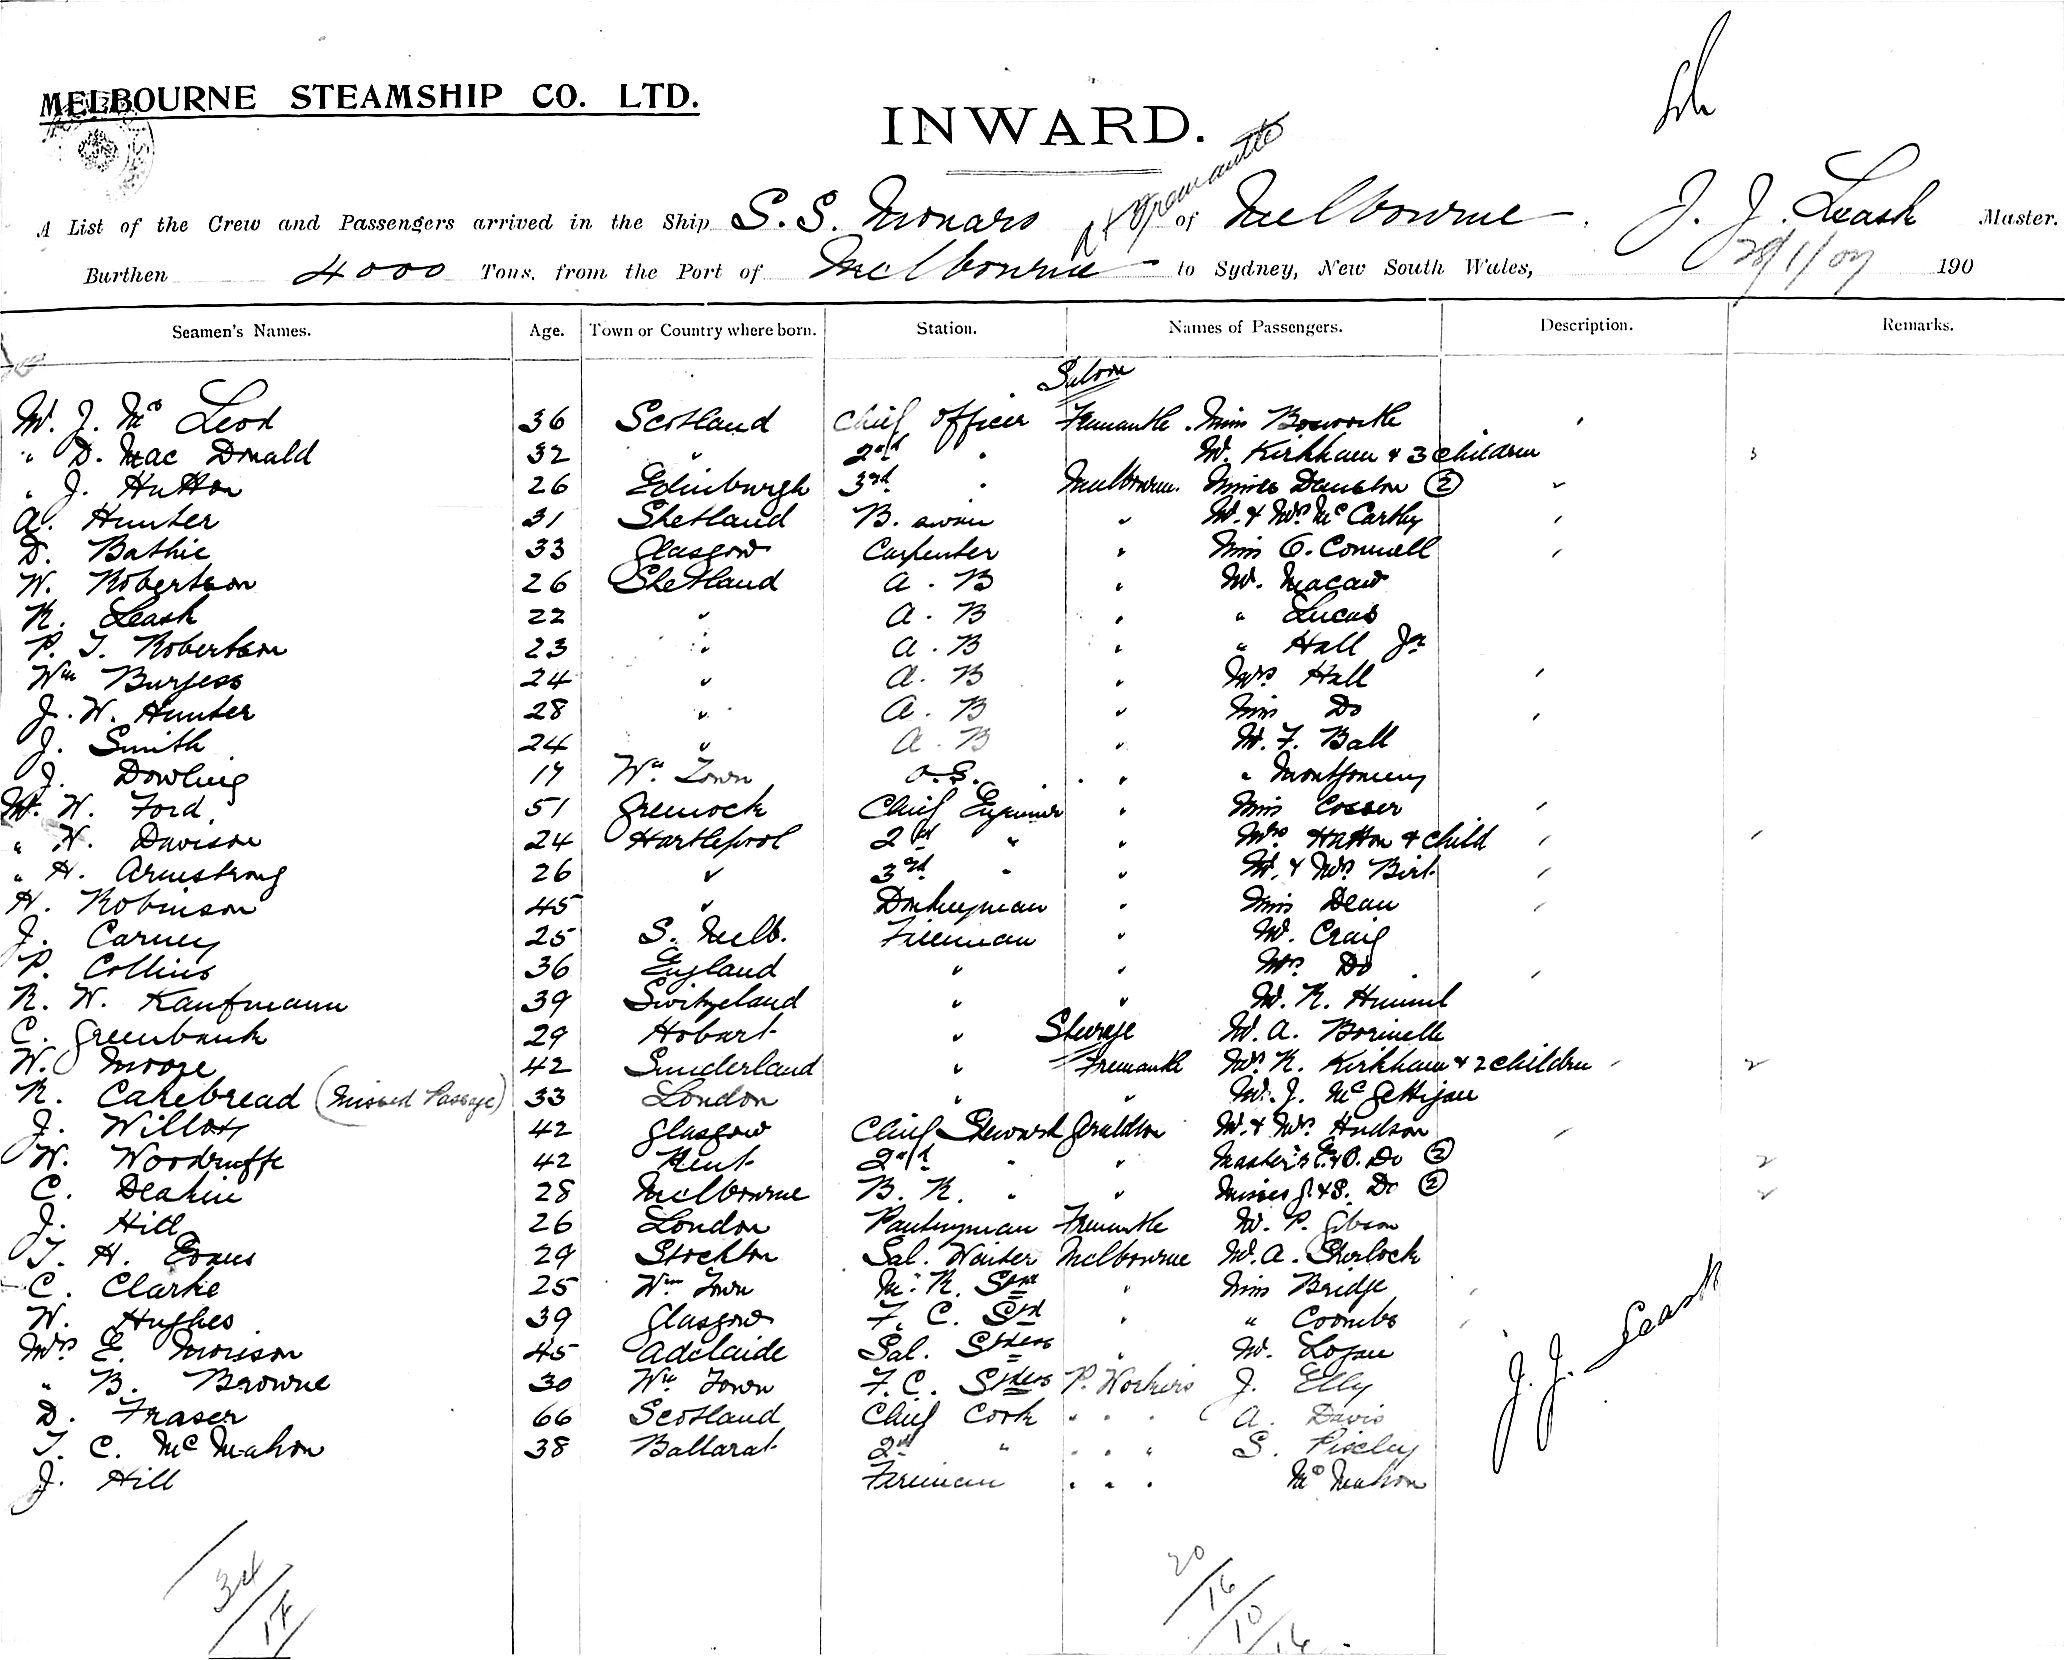 MELBOURNE STEAMSHIP CO. LTD.
INWARD.
A List of the Crew and Passengers arrived in the Ship S.S. Monaro & Fremantle of Melbourne. J. J. Leask Master.
Burthen 4000 Tons, from the Port of Melbourne to Sydney, New South Wales, 28/1/07 190
Seamen's Names. Age. Town or Country where born. Station. Names of Passengers. Description. Remarks.
Saloon
Mr. J. Mc Leod 36 Scotland Chief Officer Fremantle Miss Bosworth
" D. Mac Donald 32 " 2nd " Mr. Kirkham & 3 children 3
" J. Hutton 26 Edinburgh 3rd " Melbourne Misses (2)
A. Hunter 31 Shetland B. swain " Mr. & Mrs Mc Carthy
D. Bathie 33 Glasgow Carpenter " Miss O. Connell
W. Robertson 26 Shetland A. B " Mr. Macaw
R. Leask 22 " A. B " " Lucas
P. T. Robertson 23 " A. B " " Hall Jr
Wm Burgess 24 " A. B " Mrs Hall
J. W. Hunter 28 " A. B " Miss Do
J. Smith 24 " A. B " Mr. F. Ball
J. Dowling 17 Wm Town O.S. " " Montgomery
Mr. W. Ford 51 Greenock Chief Engineer " Miss Cosser
" W. Davison 24 Hartlepool 2nd " " Mrs Hatton & child
" H. Armstrong 26 " 3rd " " Mr. & Mrs Birt
H. Robinson 45 " Donkeyman " Miss Dean
J. Carney 25 S. Melb. Fireman " Mr. Craig
P. Collins 36 England " " Mrs Do
R. W. Kaufmann 39 Switzeland " " Mr. R. Himmil
C. Greenbank 29 Hobart " Steerage Mr. A. Borinelle
W. Moore 42 Sunderland " Fremantle Mrs R. Kirkham & 2 children 2
R. Cakebread (Missed Passage) 33 London " " Mr. J. Mc Gettigan
J. Willox 42 Glasgow Chief Steward Geraldton Mr. & Mrs Hudson
W. Woodruffe 42 Kent 2nd " " Masters E. & O. Do (2) 2
C. Deakin 28 Melbourne B. R. " " Misses G. & S. Do (2) 2
J. Hill 26 London Pantryman Fremantle Mr. P. Gibson
T. H. Evans 29 Stockton Sal. Waiter Melbourne Mr. A. Sherlock
C. Clarke 25 Wm Town M. R. Std " Miss Bridge
W. Hughes 39 Glasgow F. C. Std " " Coombs
Mrs E. Morison 45 Adelaide Sal. Stdess " Mr. Logan
" B. Browne 30 Wm Town F. C. Stdess P. Workers J. Elly
D. Fraser 66 Scotland Chief Cook " " A. Davis
T. C. Mc Mahon 38 Ballarat 2nd " " " S. Pixley
J. Hill Fireman " " Mc Mahon
J. J. Leask
34/17
20/16/10/16